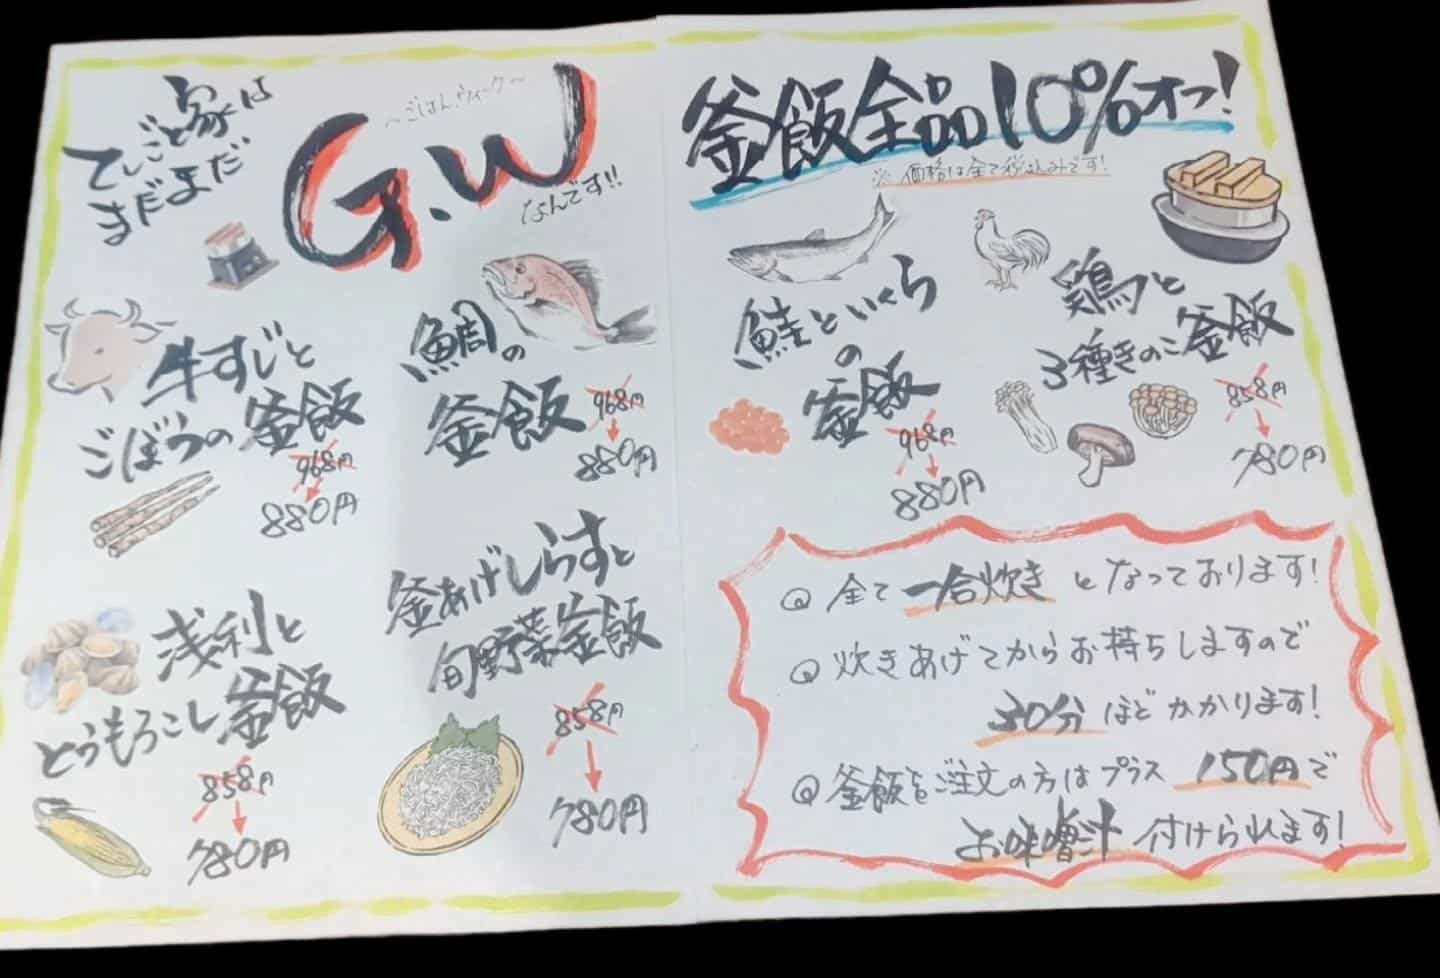 てしごと家は
まだまだ
〜ごはんウィーク〜
G.W
なんです!!
牛すじと
ごぼうの釜飯
968円
880円
鯛の
釜飯
968円
880円
浅利と
とうもろこし釜飯
858円
780円
釜あげしらすと
旬野菜釜飯
858円
780円
釜飯全品10%オフ!
※価格は全て税込みです!
鮭といくら
の
釜飯
968円
880円
鶏と
3種きのこ釜飯
858円
780円
全て一合炊きとなっております!
炊きあげてからお持ちしますので
30分ほどかかります!
釜飯をご注文の方はプラス150円で
お味噌汁付けられます!